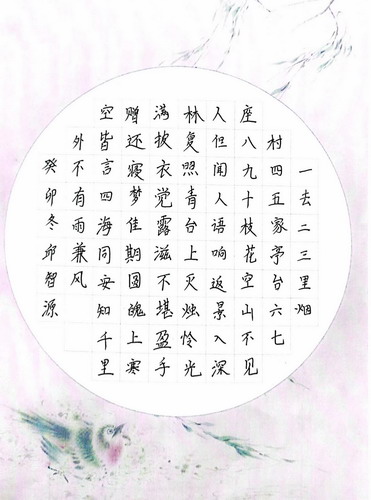 一去二三里烟
村四五家亭台六七
座八九十枝花空山不见
人但闻人语响返景入深
林复照青台上灭烛怜光
满披衣觉露滋不堪盈手
赠还寝梦佳期圆魄上寒
空皆言四海同安知千里
外不有雨兼风
癸卯冬邱智源